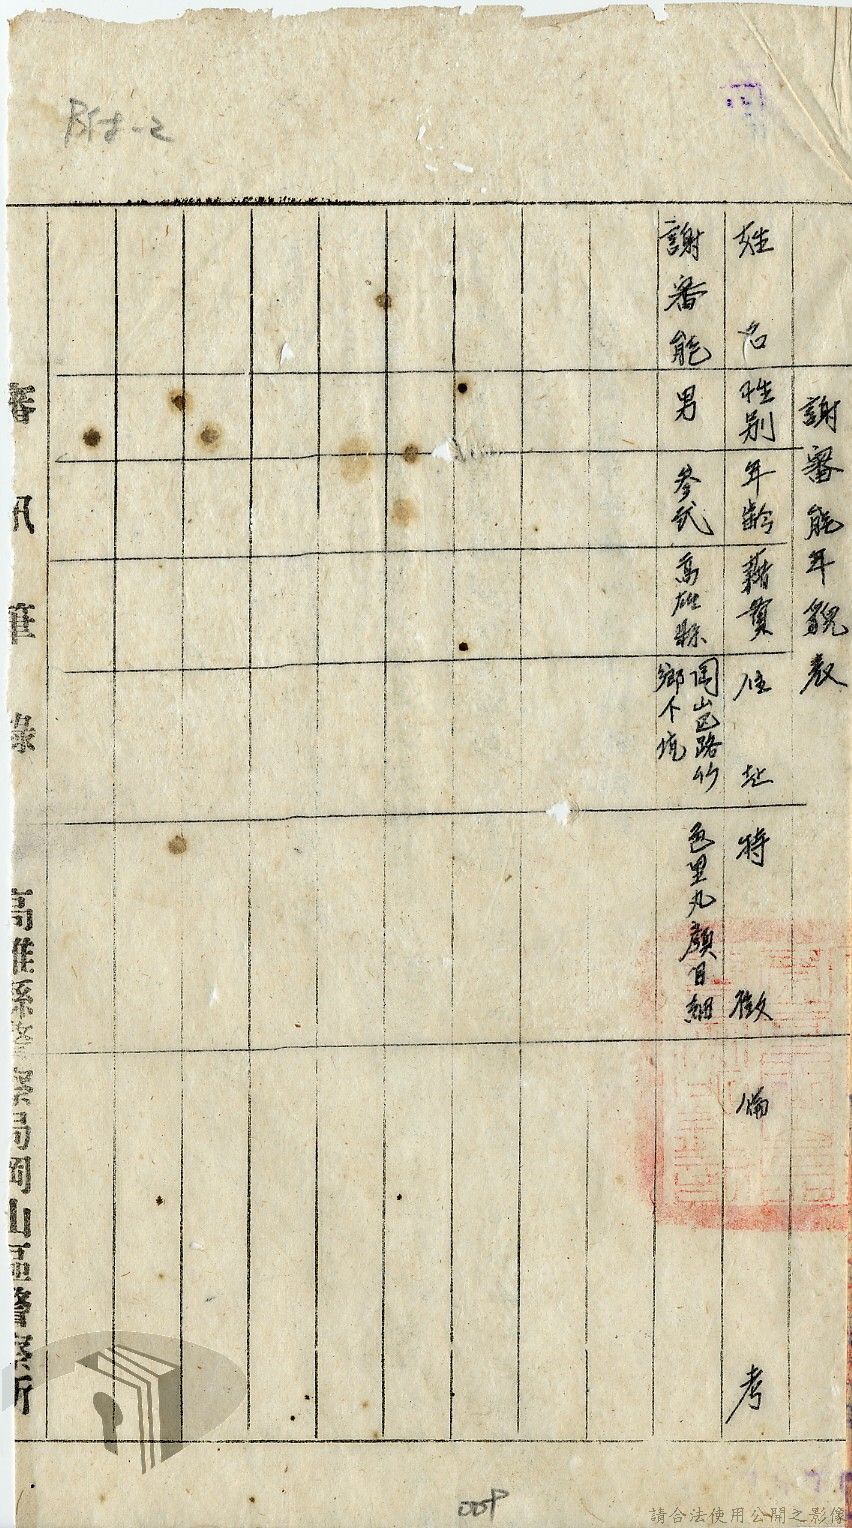 謝審能年貌表
姓名
性別
年齡
籍貫
住址
特徵
備考
謝審能
男
參弍
高雄縣
岡山区路竹
鄉下坑
色黑丸顏目細
審訊筆錄
高雄縣警察局岡山區警察所
009
請合法使用公開之影像